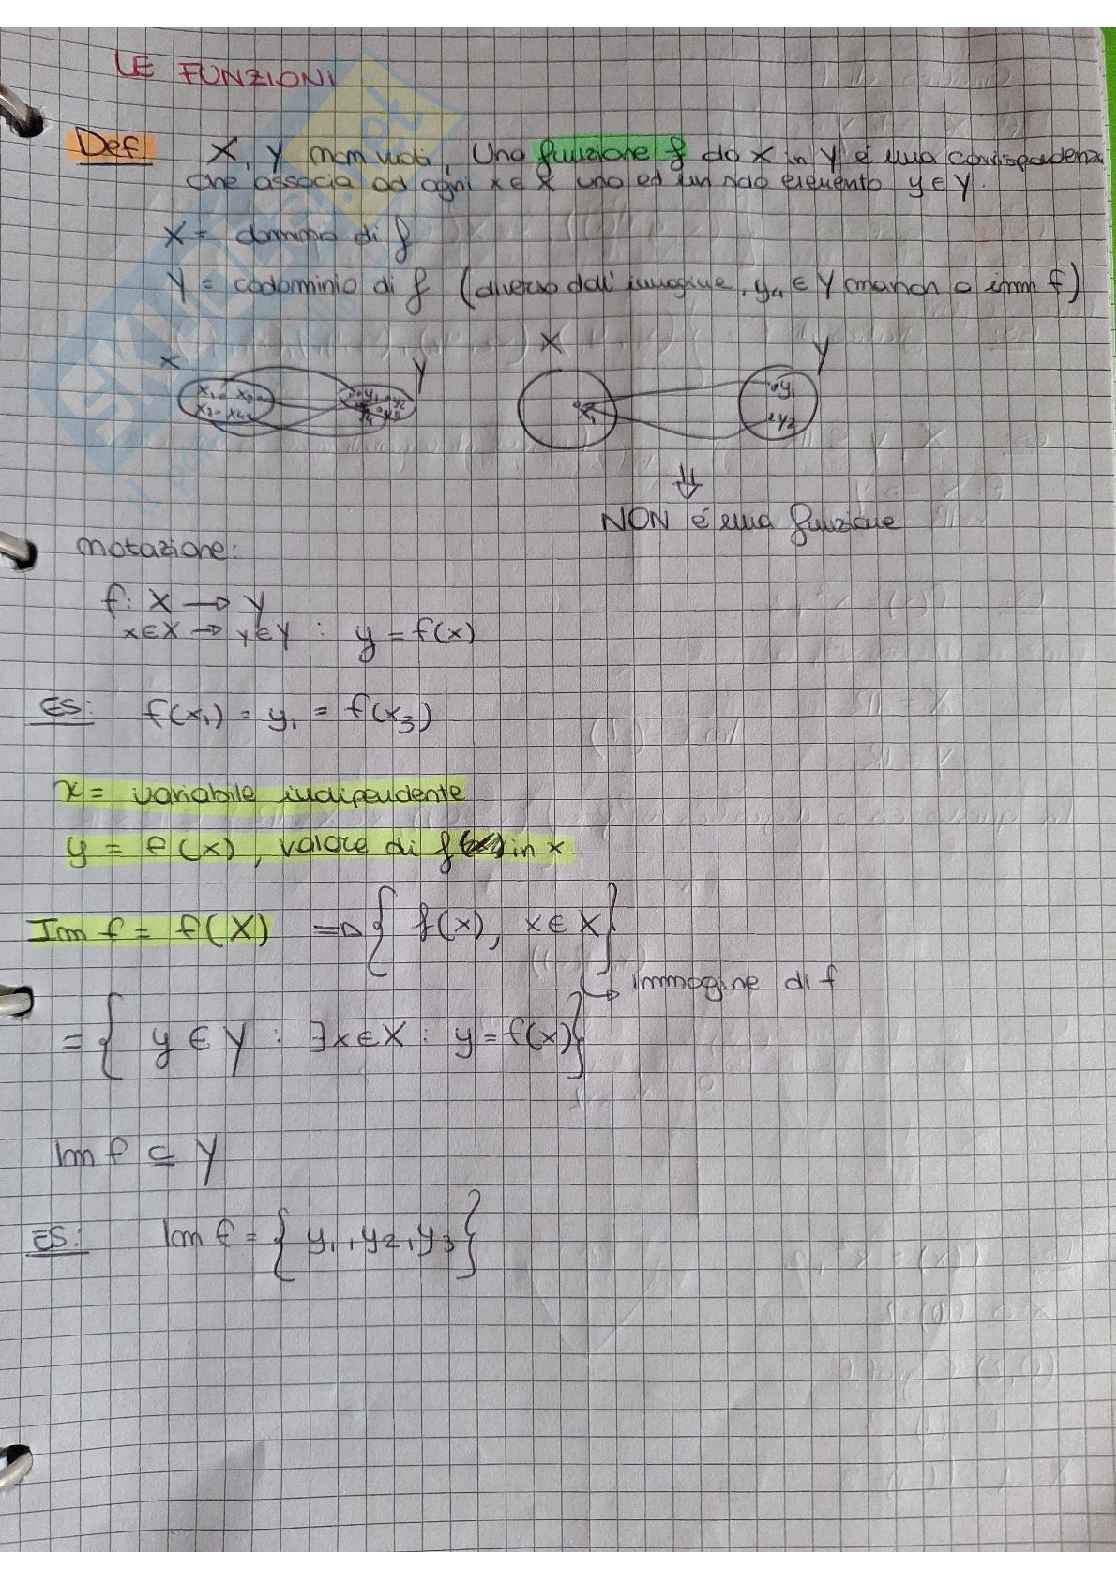 LE FUNZIONI
Def X, Y non vuoti, Una funzione f da X in Y é una corrispondenza
che associa ad ogni x ∈ X uno ed un solo elemento y ∈ Y.
X = dominio di f
Y = codominio di f (diverso dall'immagine, y4 ∈ Y manca a imm f)
X Y X Y
x1 x3 y1 y2
x2 x4 y4 y3
x1 y1
y2
⇓
NON é una funzione
notazione:
f: X → Y
x∈X → y∈Y : y = f(x)
ES: f(x1) = y1 = f(x3)
x = variabile indipendente
y = f(x), valore di f in x
Im f = f(X) ⇒ { f(x), x ∈ X }
↳ immagine di f
= { y ∈ Y : ∃x∈X : y = f(x) }
Im f ⊆ Y
ES: Im f = { y1, y2, y3 }